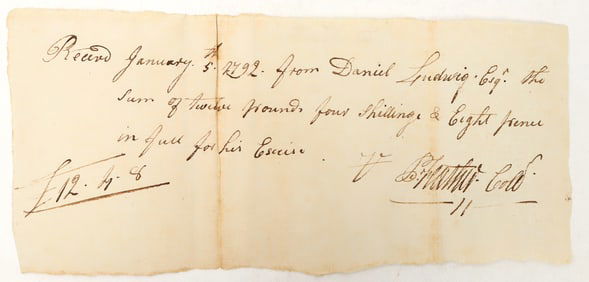 Recevd January 5th 1792. from Daniel Ludwig Esqr. the
Sum of twelve pounds four Shillings & Eight pence
in full for his Excise.
£12. 4. 8 Collr.